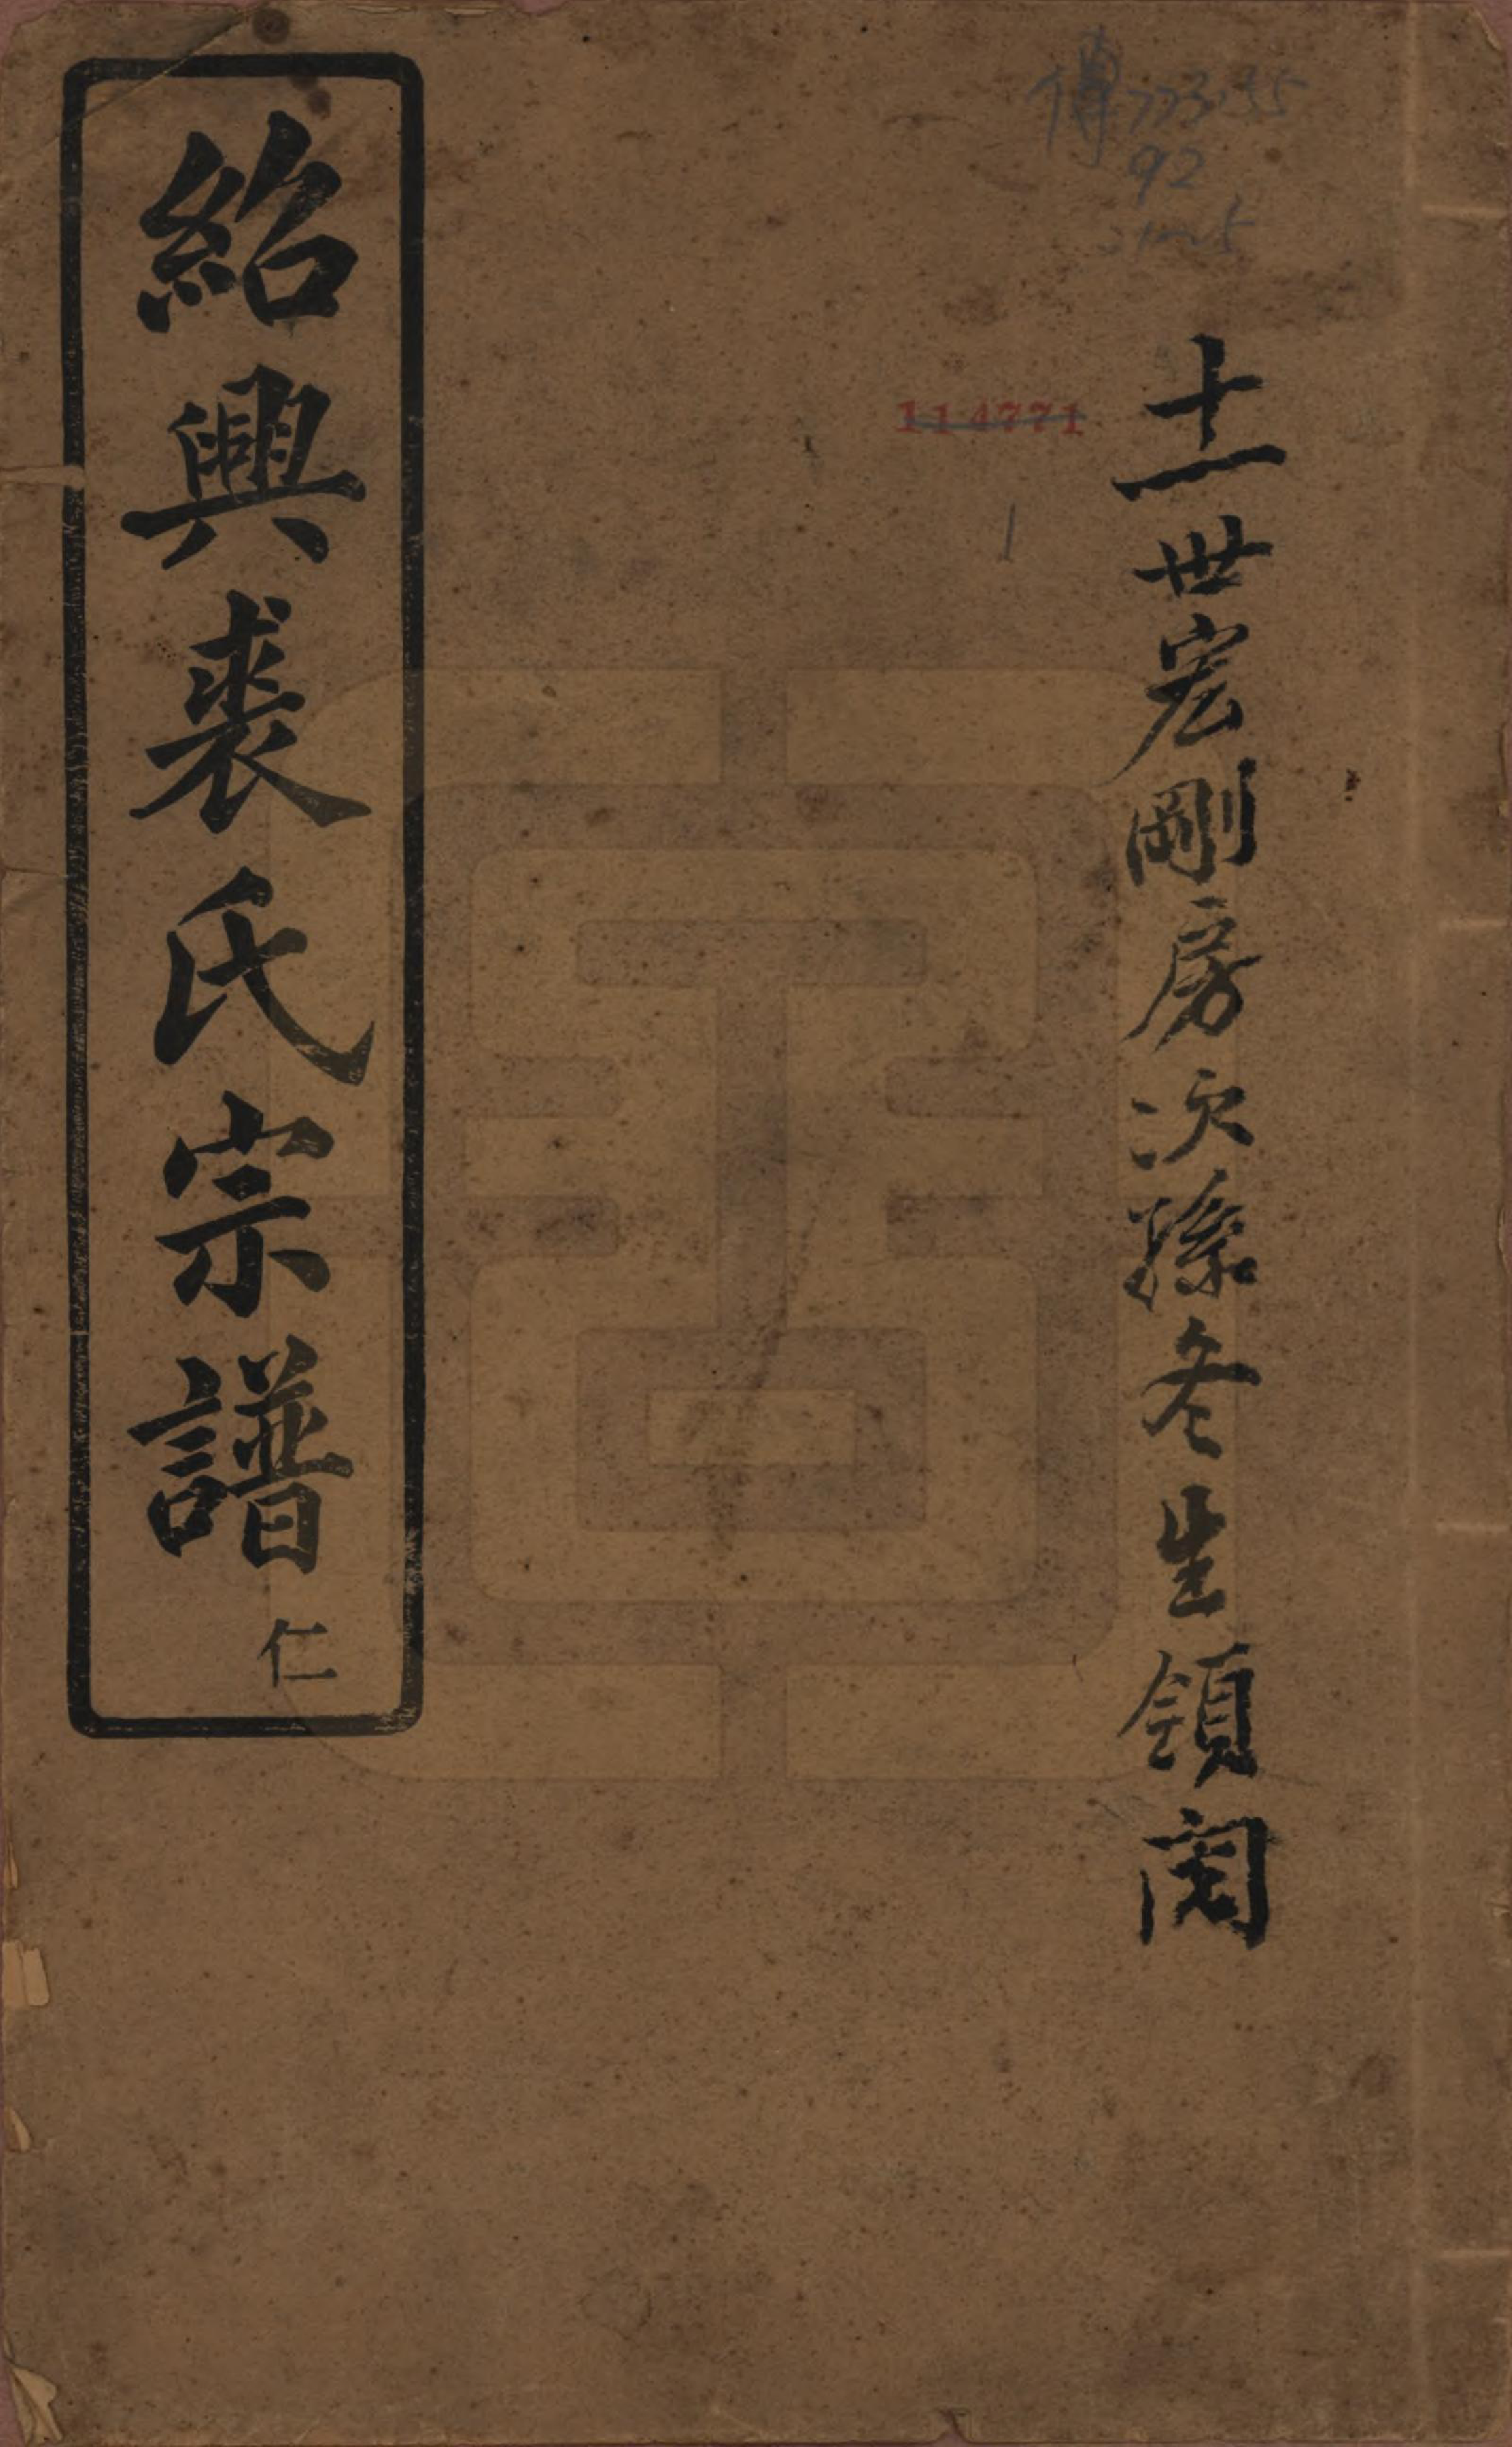 傳 773.35
92
114771
1
十一世宏剛房次孫冬生領閱
紹興裘氏宗譜 仁